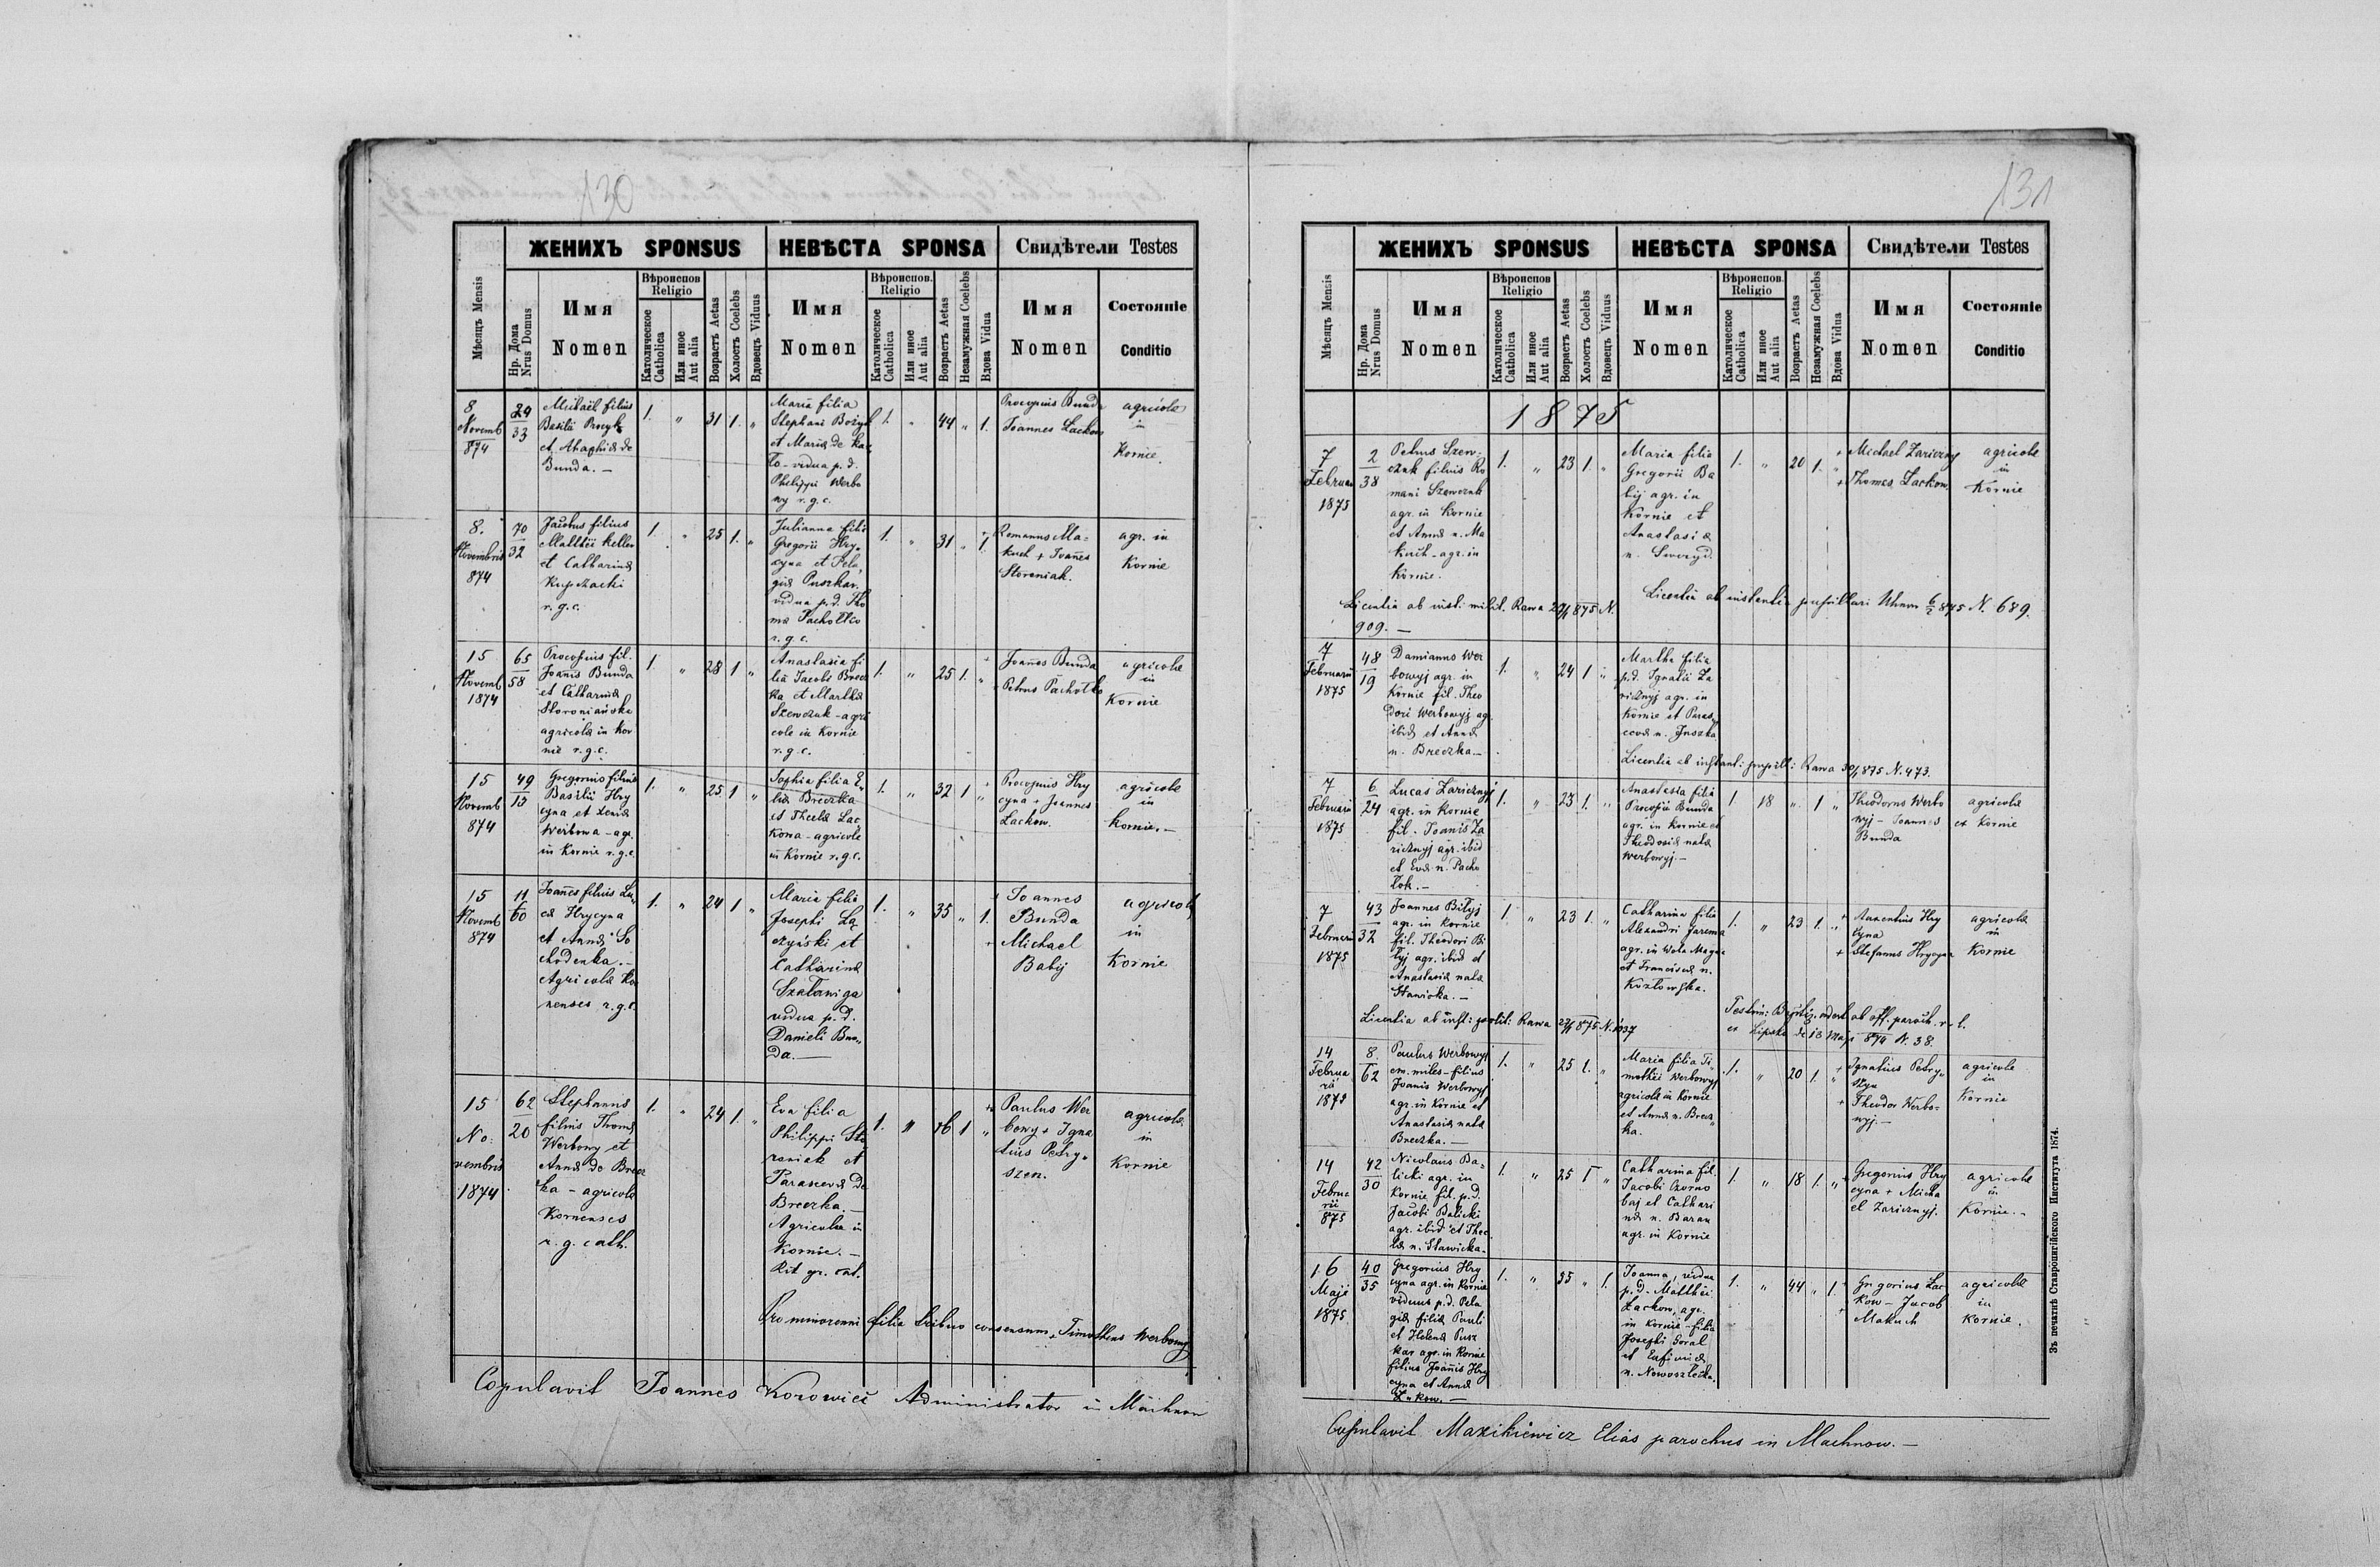 130
ЖЕНИХЪ SPONSUS НЕВѢСТА SPONSA Свидѣтели Testes
Мѣсяцъ Mensis
Нр. Дома
Nrus Domus
Имя
Nomen
Вѣроиспов.
Religio
Католическое
Catholica
Или иное
Aut alia
Возрастъ Aetas
Холостъ Coelebs
Вдовецъ Viduus
Имя
Nomen
Вѣроиспов.
Religio
Католическое
Catholica
Или иное
Aut alia
Возрастъ Aetas
Незамужная Coelebs
Вдова Vidua
Имя
Nomen
Состоянie
Conditio
8
Novemb
874
33
Michaël filius
Basilii
et Ahaphiæ de
Bunda. —
1. " 31 1. "
Maria filia
Stephani Bożyk
et Mariæ de
vidua p. d.
Philippi Werbo
wy r. g. c.
1. " 44 " 1.
Procopius Bunda
Joannes Lackow
agricolæ
in
Kornie.
8.
Novembris
874
70
32
Jacobus filius
Matthëi Keller
et Catharinæ
Kupczacki
r. g. c.
1. " 25 1. "
Julianna filia
Gregorii Hry„
cyna et Pela„
giæ Puszkar.
vidua p. d. Tho
mæ Pachołko
r. g. c.
1. " 31 " 1.
Romanus Ma-
kuch + Joañes
Storoniak.
agr. in
Kornie
15
Novemb
1874
65
58
Procopius fil.
Joañis Bunda
et Catharinæ
Storoniańska
agricolæ in Kor
nie r. g. c.
1. " 28 1 "
Anastasia fi
lia Jacobi Brecz
ka et Marthæ
Szewczuk – agri
colæ in Kornie
r. g. c.
1. " 25 1. "
Joañes Bunda
Petrus Pachołko
agricolæ
in
Kornie
15
Novemb
874
49
13
Gregorius filius
Basilii Hry
cyna et Xeniæ
Werbowa – agr.
in Kornie r. g. c.
1. " 25 1 "
Sophia filia E„
liæ Breczka
et Theclæ Lac
kowa – agricolæ
in Kornie r. g. c.
1. " 32 1 "
Procopius Hry
cyna + Joannes
Lackow.
agricolæ
in
Kornie. –
15
Novemb
874
11
60
Joañes filius Lu„
cæ Hrycyna
et Annæ So
chodenka. –
Agricolæ Kor
nenses r. g. c.
1. " 24 1 "
Maria filia
Josephi La
czyński et
Catharinæ
vidua p. d.
Danieli Bun„
da. —
1. " 35 " 1.
Joannes
Bunda
Michael
Babij
agricolæ
in
Kornie
15
No:
vembris
1874
62
20
Stephanus
filius Thomæ
Werbowy et
Annæ de Brecz
ka – agricolæ
Kornenses
r. g. cath.
1. " 24 1. "
Eva filia
Philippi Sto
roniak et
Parascevæ de
Breczka. –
Agricolæ in
Kornie. –
Rit. gr. cat.
1. " 16 1 "
Paulus Wer
bowy + Igna
tius Petry„
szen.
agricolæ
in
Kornie
Pro minorenni filia tribuo consensum + Timotheus Werbowy
Copulavit Joannes Korowicć Administrator in Machnow
131
ЖЕНИХЪ SPONSUS НЕВѢСТА SPONSA Свидѣтели Testes
Мѣсяцъ Mensis
Нр. Дома
Nrus Domus
Имя
Nomen
Вѣроиспов.
Religio
Католическое
Catholica
Или иное
Aut alia
Возрастъ Aetas
Холостъ Coelebs
Вдовецъ Viduus
Имя
Nomen
Вѣроиспов.
Religio
Католическое
Catholica
Или иное
Aut alia
Возрастъ Aetas
Незамужная Coelebs
Вдова Vidua
Имя
Nomen
Состоянie
Conditio
1875
7
Februarii
1875
2
38
Petrus Szew-
czuk filius Ro
mani Szewczuk
agr. in Kornie
et Annæ n. Ma
kuch – agr. in
Kornie.
1. " 23 1. "
Maria filia
Gregorii Ba
bij agr. in
Kornie et
Anastasiæ
n.
1. " 20 1. "
+ Michael Zariczny
+ Thomas Lackow.
agricolæ
in
Kornie
Licentia ab inst: milit. Rawa 875 N.
909. —
Licentia ab instantia pupillari Uhnow 6/2 875 N. 689.
7
Februarii
1875
48
19
Damianus Wer
bowyj agr. in
Kornie fil. Theo
dori Werbowyj agr.
ibid et Annæ
n. Breczka. –
1. " 24 1 "
Martha filia
p. d. Ignatii Za
ricznyj agr. in
Kornie et Paras„
cevæ n. Juszka
Licentia ab instant: pupill: Rawa 30/1 875 N. 473.
7
Februarii
1875
6
24
Lucas Zaricznyj
agr. in Kornie
fil. Joanis Za
ricznyj agr. ibid
et Evæ n. Pacho
łok. –
1. " 23 1. "
Anastasia filia
Procopii Bunda
agr. in Kornie et
Theodosiæ nata
Werbowyj. –
1. 18 " 1 "
Theodorus Werbo
wyj – Joannes
Bunda
agricolæ
et Kornie
7
Februarii
1875
43
32
Joannes Biłyj
agr. in Kornie
fil. Theodori Bi
łyj agr. ibid et
Anastasiæ nata
Stawicka. –
1. " 23 1. "
Catharina filia
Alexandri Jarema
agr. in Wola
et Franciscæ n.
Kozłowska.
1. " 23 1. "
+ Auxentius Hry
cyna
+ Stefanus Hrycyna
agricolæ
in
Kornie
Licentia ab inst: Rawa 875 N. 1037
Testim: ab off. paroch. r. l.
Lipsko de 13 Maji 874 N. 38.
14
Februa
rii
1875
8.
62
Paulus Werbowyj
em. miles – filius
Joanis Werbowyj
agr. in Kornie et
Anastasiæ nata
Breczka. —
1. " 25 1. "
Maria filia Ti
mothëi Werbowyj
agricolæ in Kornie
et Annæ n. Brecz„
ka.
1. " 20 1. "
+ Ignatius Petry„
szyn
+ Theodor Werbo-
wyj. —
agricolæ
in
Kornie
14
Februa
rii
875
42
30
Nicolaus Ba-
licki agr. in
Kornie fil. p. d.
Jacobi Balicki
agr. ibid et Thec
læ n. Stawicka.
1. " 25 1 "
Catharina fil.
Jacobi Czorno
baj et Cathari
næ n. Baran
agr. in Kornie
1. " 18 1. "
+ Gregorius Hry
cyna + Micha
el Zaricznyj.
agricolæ
in
Kornie. –
16
Maji
1875
40
35
Gregorius Hry
cyna agr. in Kornie
viduus p. d. Pela
giæ filiæ Pauli
et Helenæ Pusz
kar agr. in Kornie
filius Joañis Hry
cyna et Annæ
Lackow. —
1. " 35 " 1.
Joanna, vidua
p. d. Matthëi
Lackow, agr.
in Kornie – filia
Josephi Goral
et Eufimiæ
n.
1. " 44 " 1.
+ Gregorius Lac
kow – Jacob
+ Makuch
agricolæ
in
Kornie.
Copulavit Maxikiewicz Elias parochus in Machnow. —
Зъ печатнѣ Ставропигійского Института 1874.